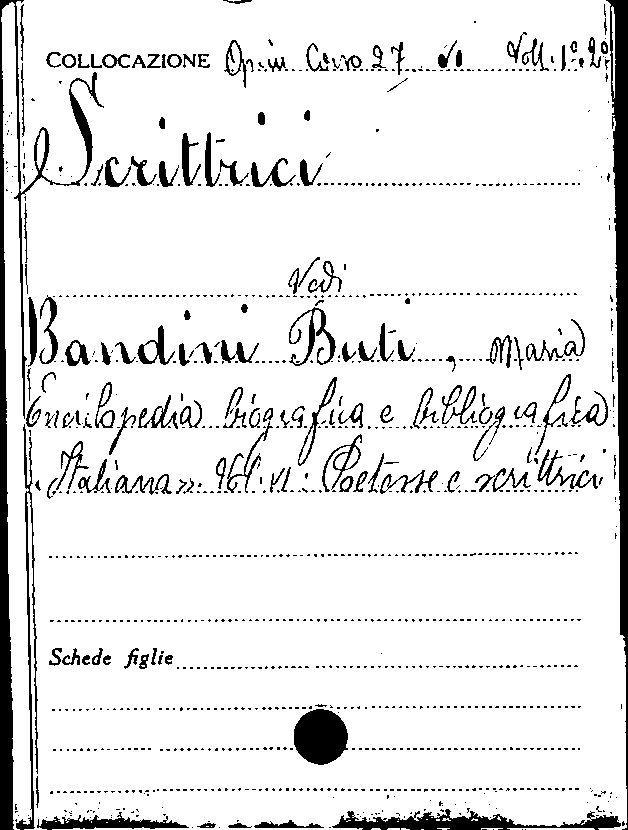 COLLOCAZIONE Op. in Corso 27 VI Voll. 1º. 2º
Scrittrici
Vedi
Bandini Buti, Maria
Enciclopedia biografica e bibliografica
"Italiana». Vol. VI: Poetesse e scrittrici
Schede figlie